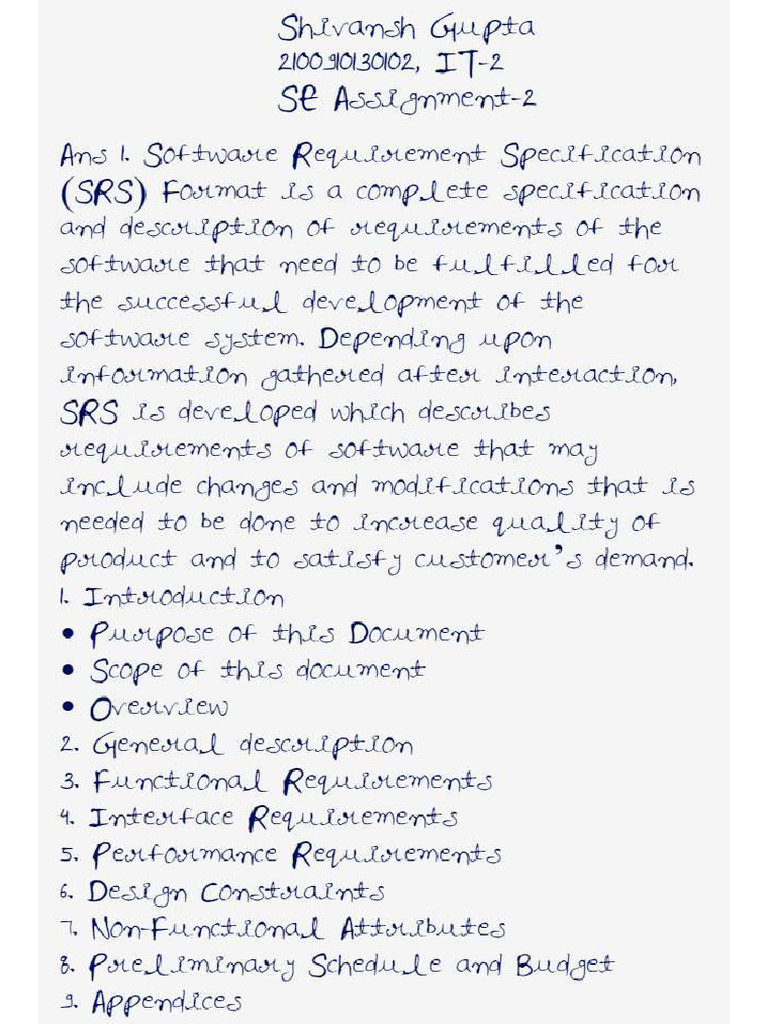 Shivansh Gupta
2100910130102, IT-2
SE Assignment-2
Ans 1. Software Requirement Specification
(SRS) Format is a complete specification
and description of requirements of the
software that need to be fulfilled for
the successful development of the
software system. Depending upon
information gathered after interaction,
SRS is developed which describes
requirements of software that may
include changes and modifications that is
needed to be done to increase quality of
product and to satisfy customer's demand.
1. Introduction
• Purpose of this Document
• Scope of this document
• Overview
2. General description
3. Functional Requirements
4. Interface Requirements
5. Performance Requirements
6. Design Constraints
7. Non-Functional Attributes
8. Preliminary Schedule and Budget
9. Appendices